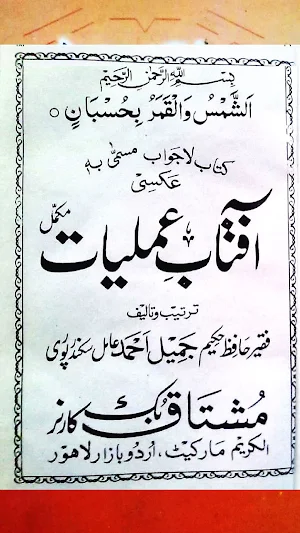 بِسْمِ اللّٰهِ الرَّحْمٰنِ الرَّحِيْمِ
اَلشَّمْسُ وَالْقَمَرُ بِحُسْبَانٍ ○
کتاب لاجواب مسمّٰی بہ
عکسی
آفتابِ عملیات مکمّل
ترتیب و تالیف
فقیر حافظ حکیم جمیل احمد عامل سکندرپوری
مشتاق بک کارنر
الکریم مارکیٹ، اردو بازار لاھور